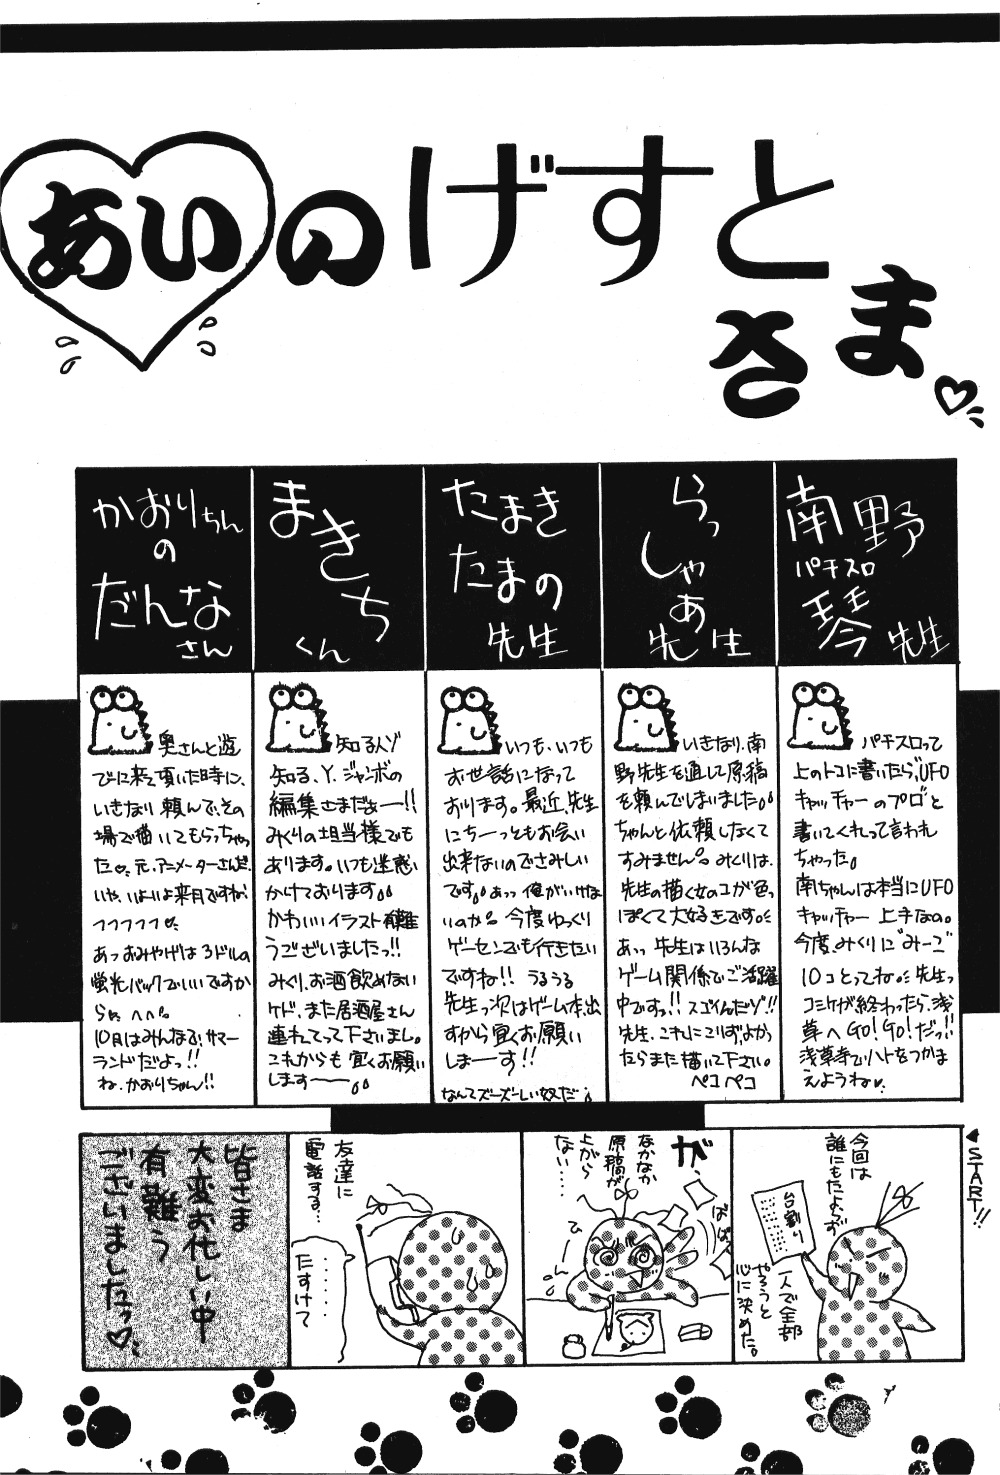 あいのげすと
さま
南野
パチスロ
琴先生
らっ
しゃあ
先生
たまき
たまの
先生
まきち
くん
かおりちん
の
だんな
さん
パチスロって
上のトコに書いたら、UFO
キャッチャーのプロ"と
書いてくれって言われ
ちゃった。
南ちゃんは本当にUFO
キャッチャー上手なの。
今度、みくりに"みーご"
10コとってね。先生っ
コミケが終わったら、浅
草へGO!GO!だっ!!
浅草寺でハトをつかま
えようね
いきなり、南
野先生を通して原稿
を頼んでしまいました。
ちゃんと依頼しなくて
すみません。みくりは、
先生の描く女のコが色っ
ぽくて大好きです。
あっ先生はいろんな
ゲーム関係でご活躍
中ですっ!!スゴイんだゾ!!
先生、これにこりず、よかっ
たらまた描いて下さい。
ペコペコ
いつも、いつも
お世話になって
おります。最近、先生
にちーっともお会い
出来ないのでさみしい
です。あっ俺がいけな
いのか。今度ゆっくり
ゲーセンでも行きたい
ですね!!うるうる
先生っ次はゲーム本、出
すから宜くお願い
しまーす!!
なんてズーズーしい奴だ
知る人ゾ
知る、Y.ジャンプの
編集さまだぁー!!
みくりの担当様でも
あります。いつも迷惑
かけております
かわいいイラスト有難
うございましたっ!!
みくり、お酒飲めない
ケド、また居酒屋さん
連れてって下さいまし。
これからも宜くお願い
しますーー
奥さんと遊
びに来て頂いた時に、
いきなり頼んで、その
場で描いてもらっちゃっ
た♡元、アニメーターさんだ。
いや、いよいよ来月ですね
フフフフフ
あっおみやげは3ドルの
蛍光パックでいいですか
らね へへ
10月はみんなで、サマー
ランドだよっ!!
ね、かおりちゃん!!
START!!
今回は
誰にもたよらず
台割り
一人で全部
やろうと
心に決めた。
が、
なかなか
原稿が
上がら
ない……
ばばっ
ひーん
友達に
電話する…
‥‥‥
たすけて
皆さま
大変お忙しい中
有難う
ございましたっ♡